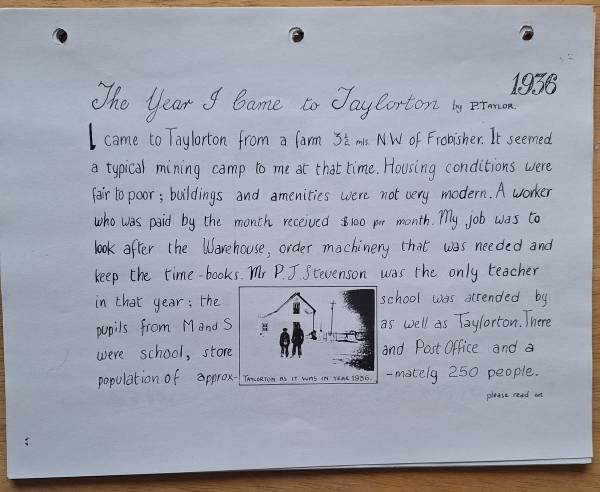 1936
The Year I Came to Taylorton by P.TAYLOR.
I came to Taylorton from a farm 3½ mls NW of Frobisher. It seemed
a typical mining camp to me at that time. Housing conditions were
fair to poor; buildings and amenities were not very modern. A worker
who was paid by the month received $100 per month. My job was to
look after the Warehouse, order machinery that was needed and
keep the time-books. Mr P.J. Stevenson was the only teacher
in that year; the school was attended by
pupils from M and S as well as Taylorton. There
were school, store and Post Office and a
population of approx- -mately 250 people.
TAYLORTON AS IT WAS IN YEAR 1936.
please read on